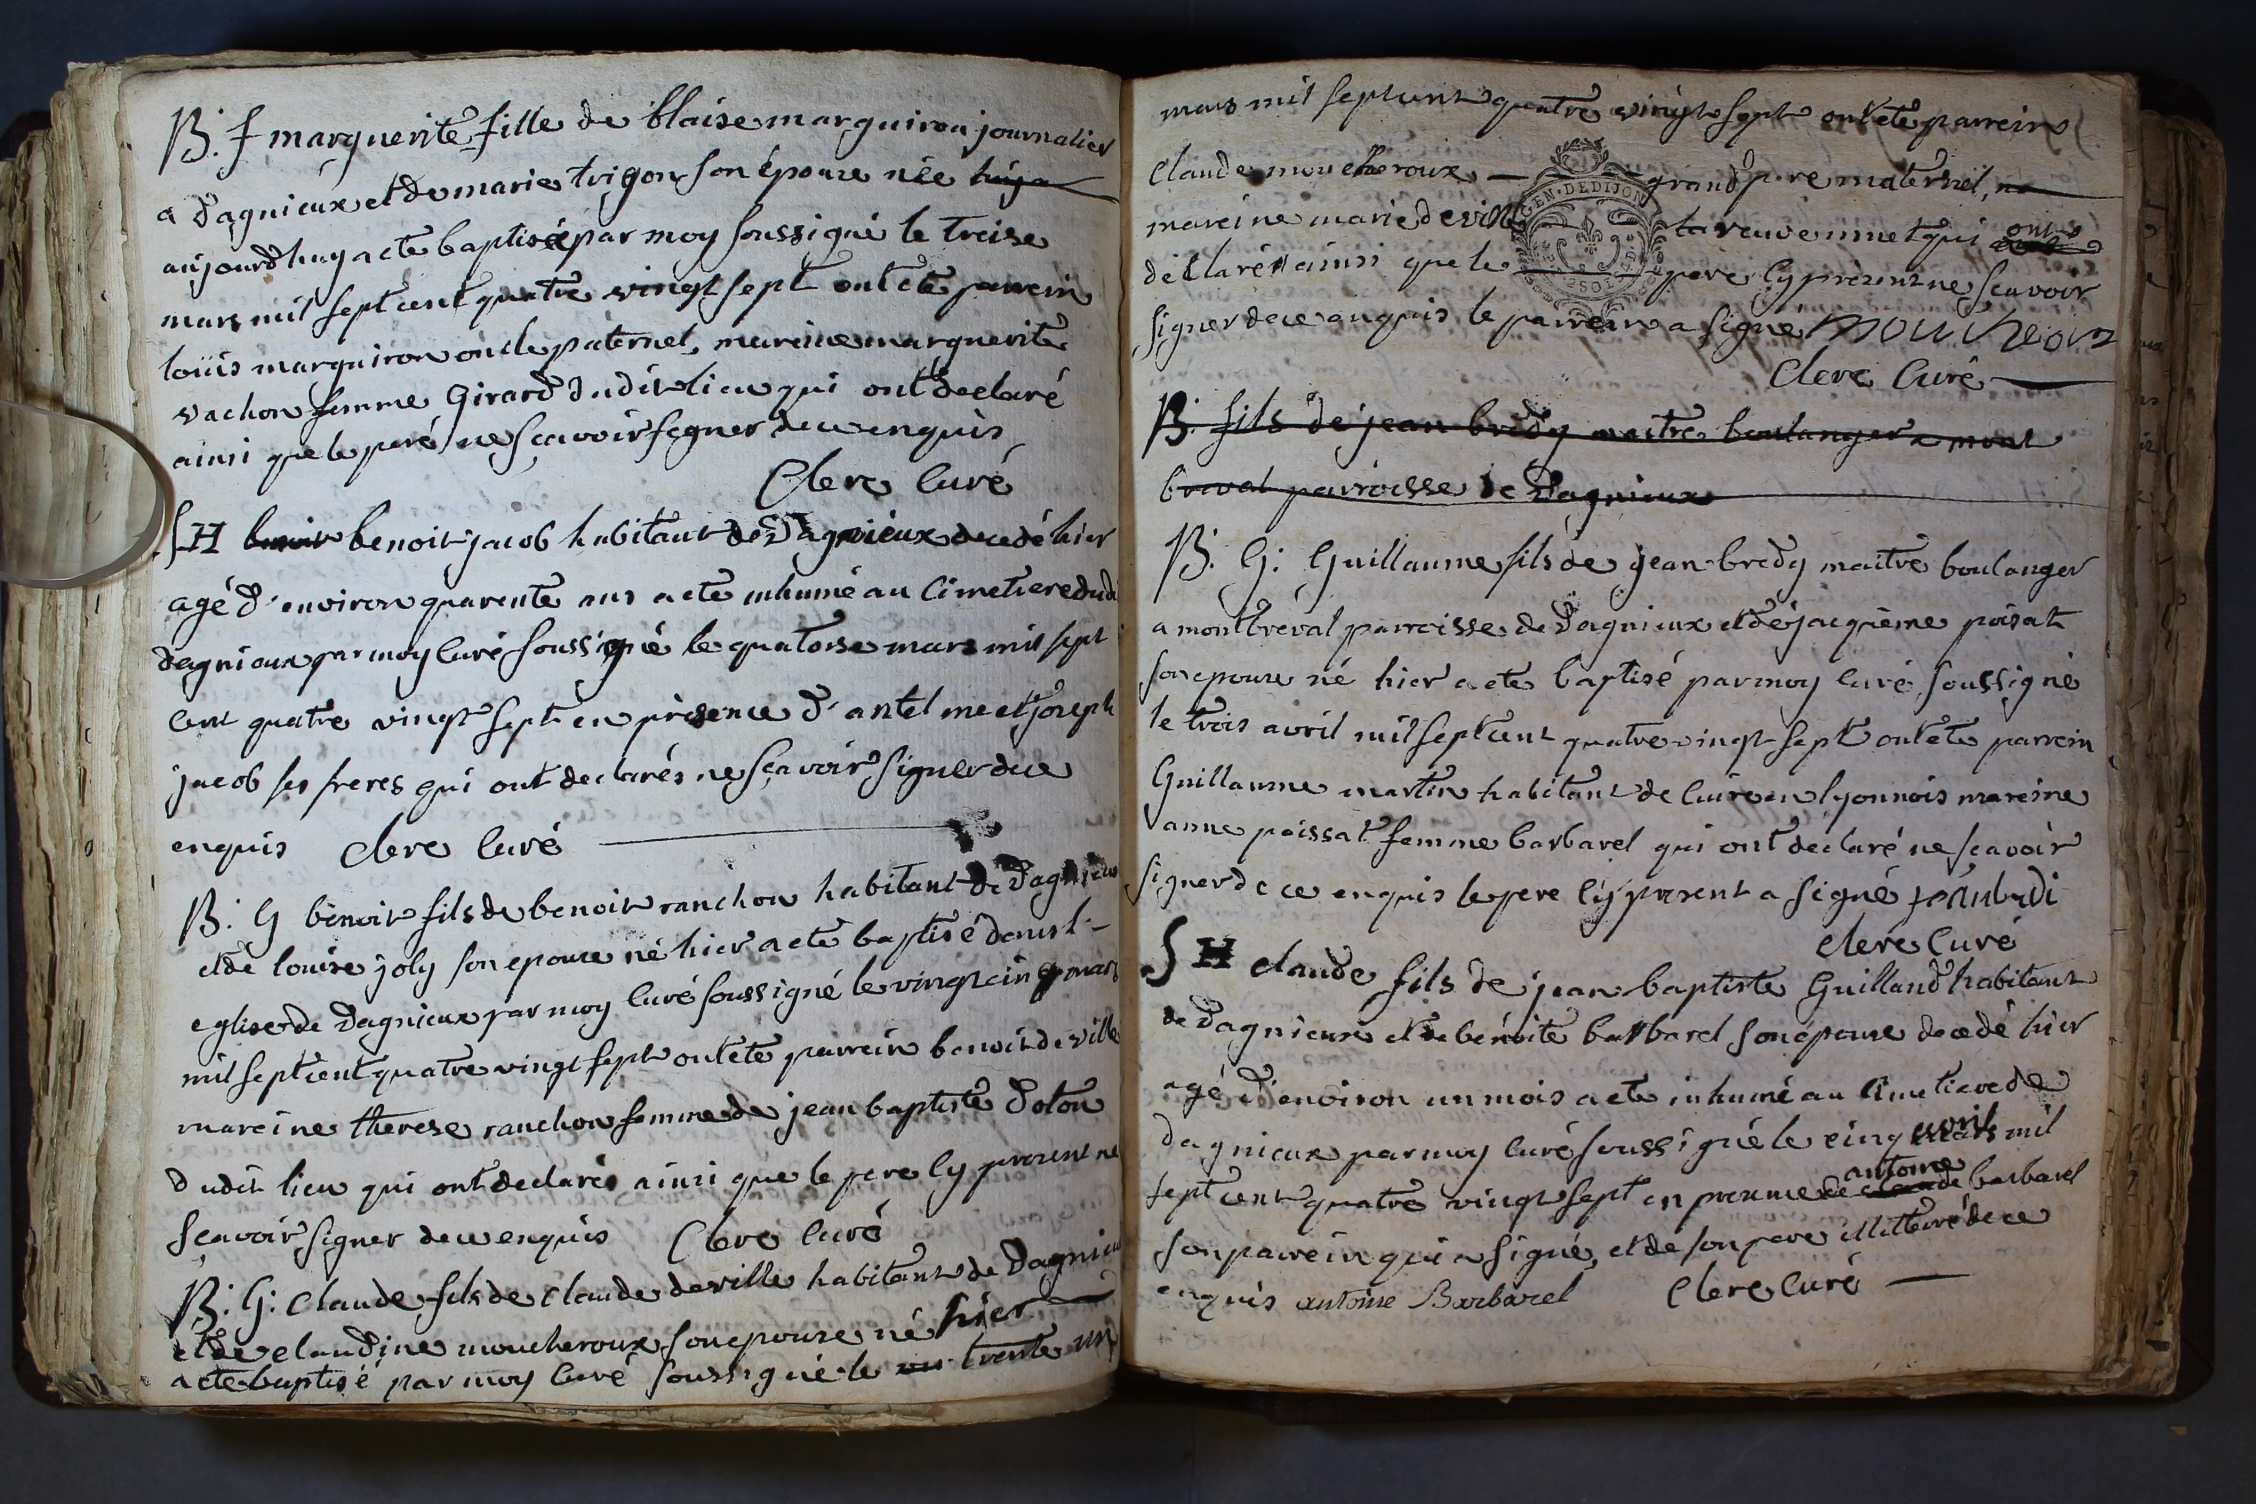 B. f marguerite fille de blaise marguiron journalier
a Dagnieux et de marie trigon son épouse née
aujourdhuy a ete baptisée par moy soussigné le treize
mars mil sept cent quatre vingt sept ont ete parrein
loüis marguiron oncle paternel, mareine marguerite
vachon femme Girard dudit lieu qui ont declaré
ainsi que le peré ne sçavoir signer de ce enquis
Clerc Curé
SH benoit benoit jacob habitant de Dagnieux decedé hier
agé d'environ quarente ans a ete inhumé au Cimetiere dud
dagnieux par moy Curé soussigné le quatorse mars mil sept
cent quatre vingt sept en présence d'antelme et joseph
jacob ses freres qui ont declarés ne sçavoir signer de ce
enquis Clerc Curé
B. G benoit fils de benoit ranchon habitant de Dagnieux
et de louise joly son epouse né hier a ete baptisé dans l-
eglise de Dagnieux par moy Curé soussigné le vingt cinq mars
mil sept cent quatre vingt sept ont ete parrein benoit de ville
mareine therese ranchon femme de jean baptiste Doton
dudit lieu qui ont declarés ainsi que le pere cy present ne
sçavoir signer de ce enquis Clerc Curé
B. G: Claude fils de Claude deville habitant de Dagnieu
et de claudine moucheroux son epouse né hier
a ete baptisé par moy Curé soussigné le trente un
mars mil sept cent quatre vingt sept ont ete parrein
Claude moucheroux grand pere maternel,
GEN. DE DIJON
mareine marie deville qui ont
déclaré ainsi que le pere cy present ne sçavoir
signer de ce enquis le parrein a signé moucheroux
Clerc Curé
B. fils de jean bredy maitre boulanger a mont
breval parroisse de Dagnieux
B. G: Guillaume fils de jean bredy maitre boulanger
a montbreval parroisse de Dagnieux et de jacqueme poisat
son epouse né hier a ete baptisé par moy Curé soussigné
le trois avril mil sept cent quatre vingt sept ont ete parrein
Guillaume martin habitant de Cuire en lyonnois mareine
anne poissat femme barbarel qui ont declaré ne sçavoir
signer de ce enquis le pere cy present a signé jean bredi
Clerc Curé
SH claude fils de jean baptiste Guilland habitant
de Dagnieux et de bénoite barbarel son épouse decedé hier
agé d'environ un mois a ete inhumé au Cimetiere de
dagnieux par moy Curé soussigné le cinq avril mil
sept cent quatre vingt sept en presence de claude antoine barbarel
son parrein qui a signé, et de son pere illitteré de ce
enquis antoine Barbarel Clerc Curé